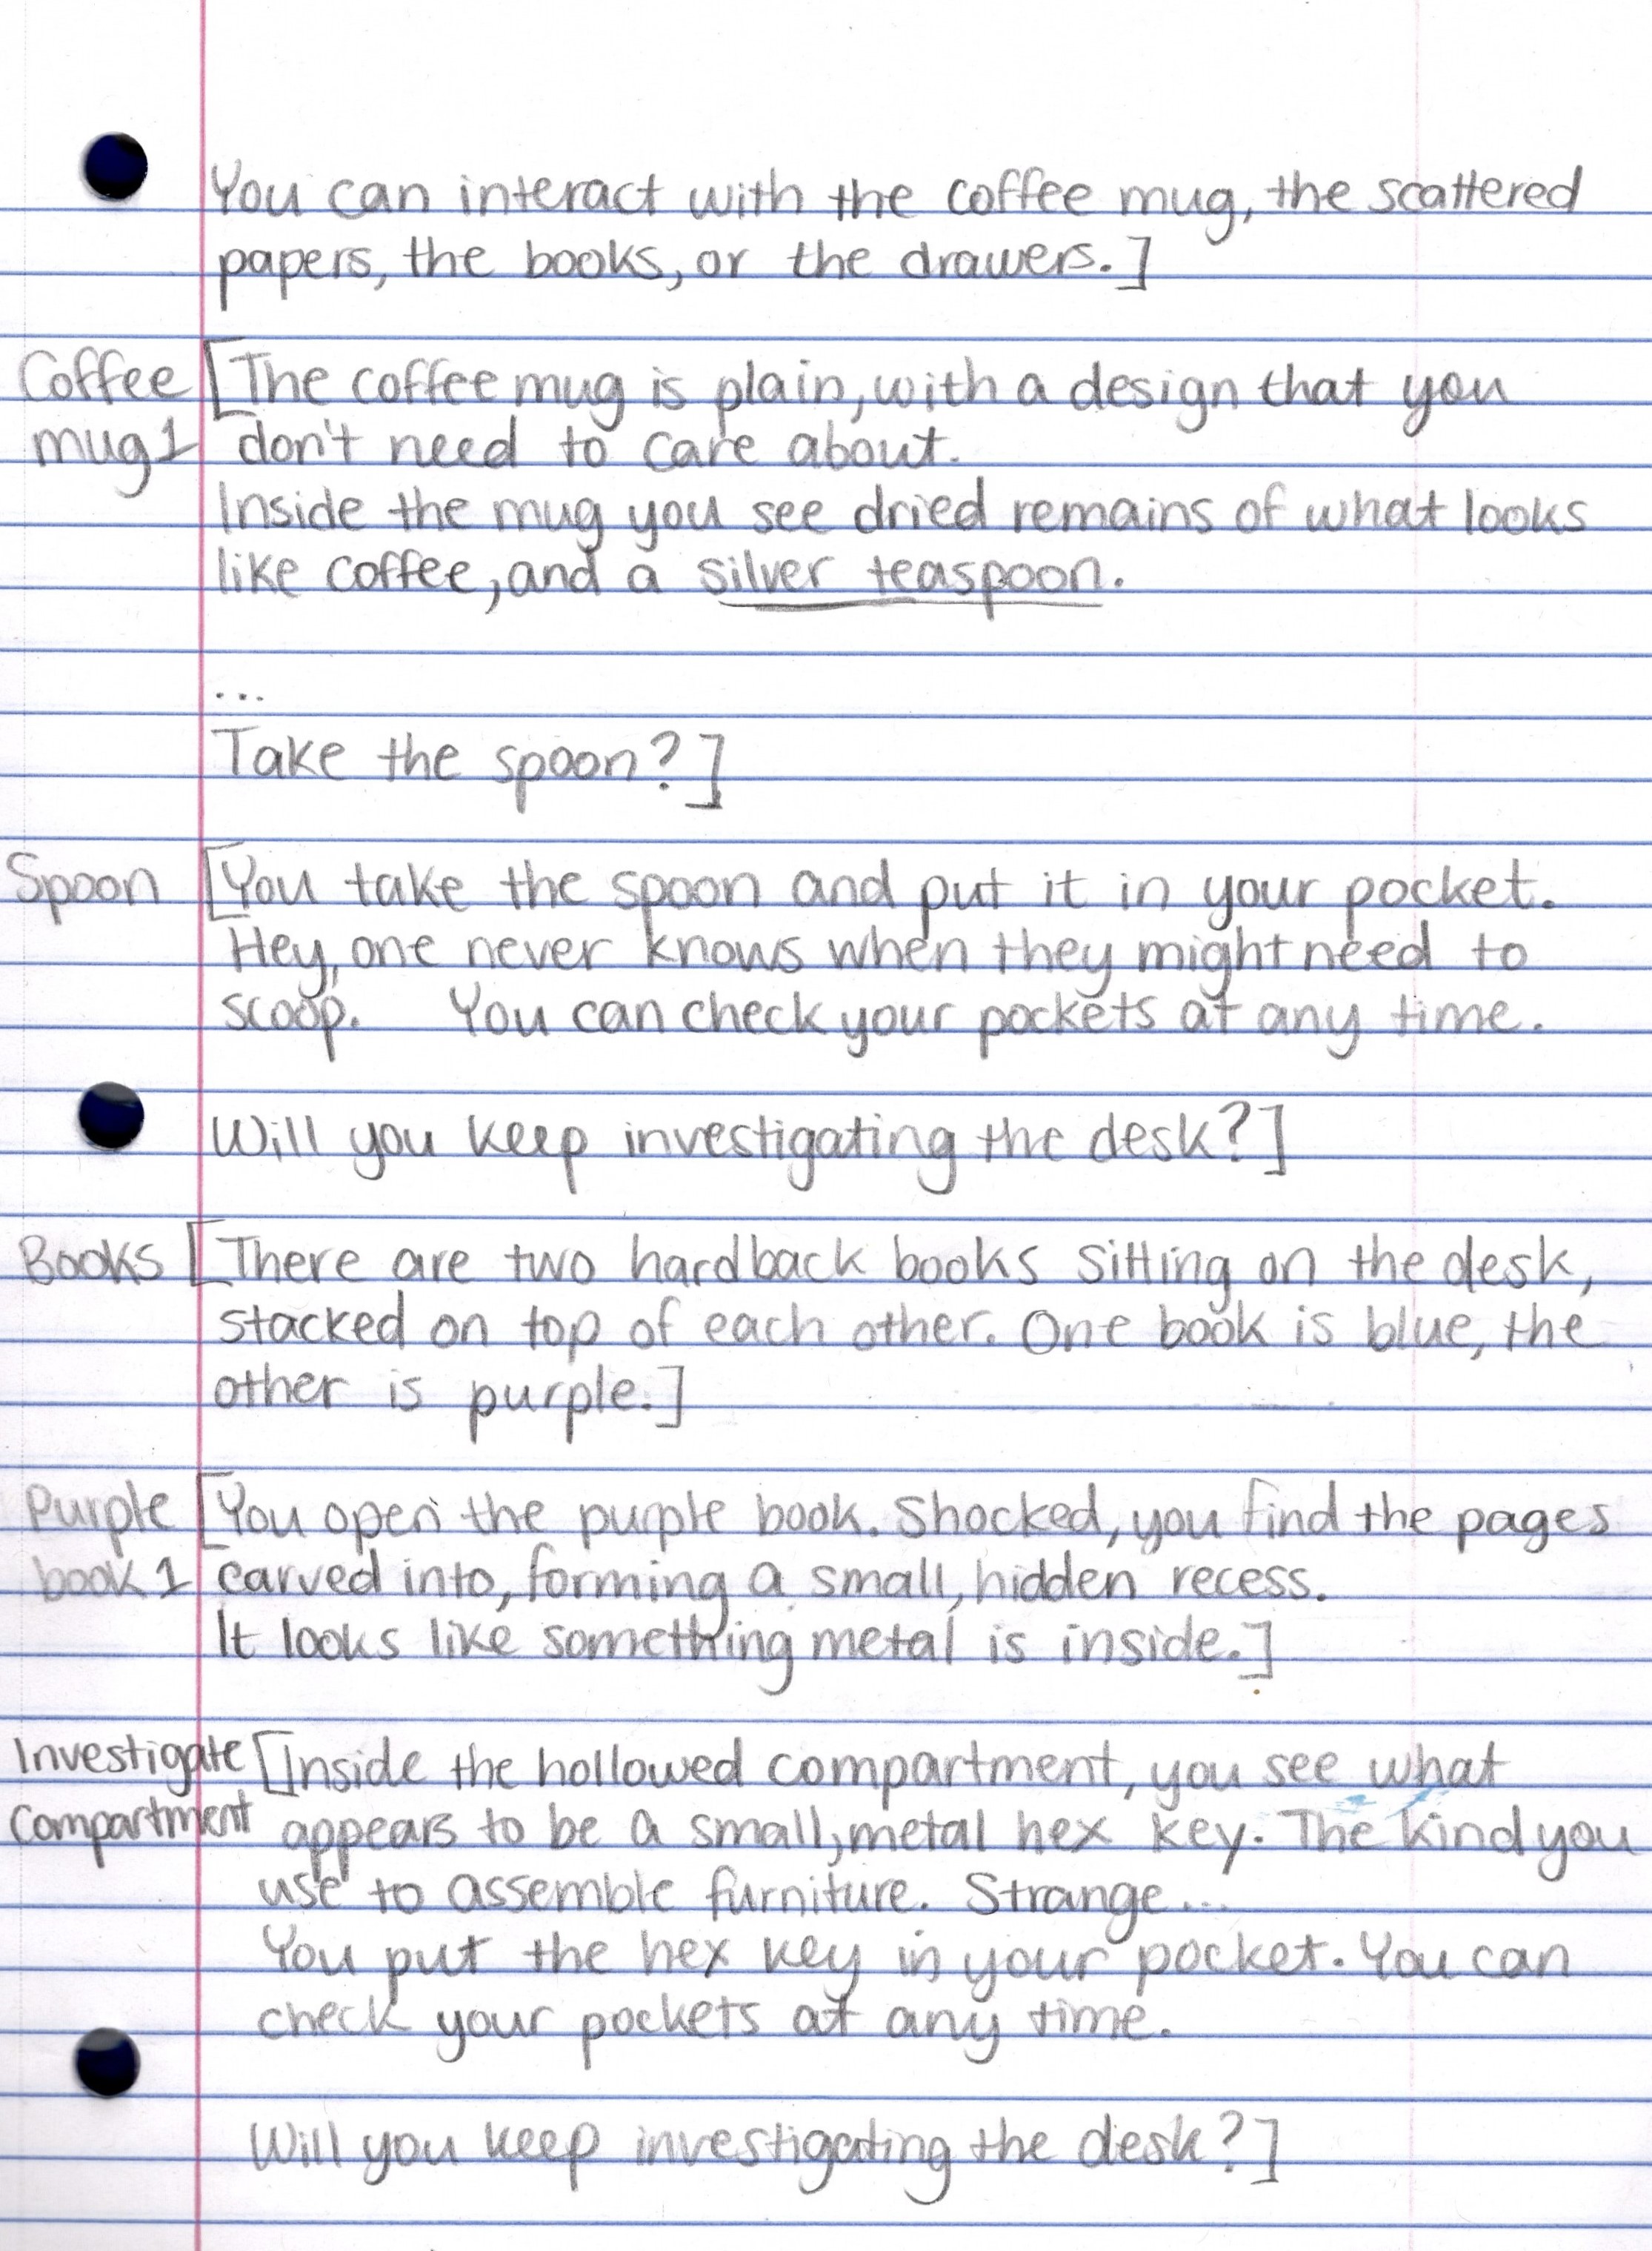 You can interact with the coffee mug, the scattered
papers, the books, or the drawers.]
Coffee [The coffee mug is plain, with a design that you
mug 1 don't need to care about.
Inside the mug you see dried remains of what looks
like coffee, and a silver teaspoon.
...
Take the spoon?]
Spoon [You take the spoon and put it in your pocket.
Hey, one never knows when they might need to
scoop. You can check your pockets at any time.
Will you keep investigating the desk?]
Books [There are two hardback books sitting on the desk,
stacked on top of each other. One book is blue, the
other is purple.]
Purple [You open the purple book. Shocked, you find the pages
book 1 carved into, forming a small, hidden recess.
It looks like something metal is inside.]
Investigate [Inside the hollowed compartment, you see what
Compartment appears to be a small, metal hex key. The kind you
use to assemble furniture. Strange...
You put the hex key in your pocket. You can
check your pockets at any time.
Will you keep investigating the desk?]